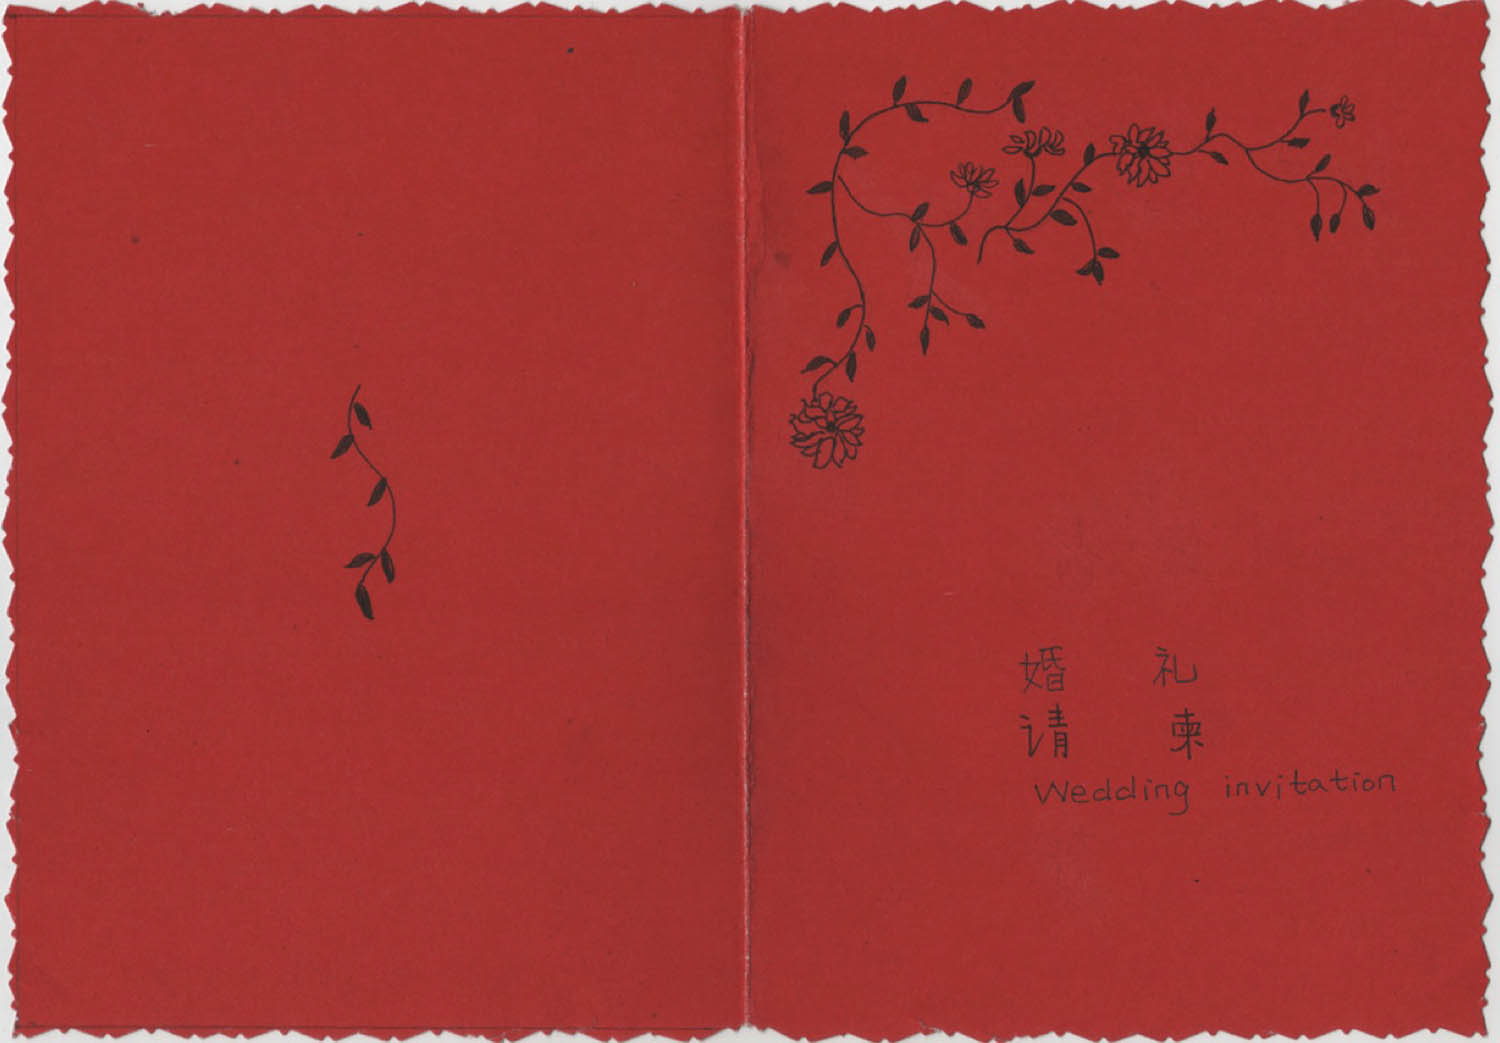 婚 礼
请 柬
Wedding invitation